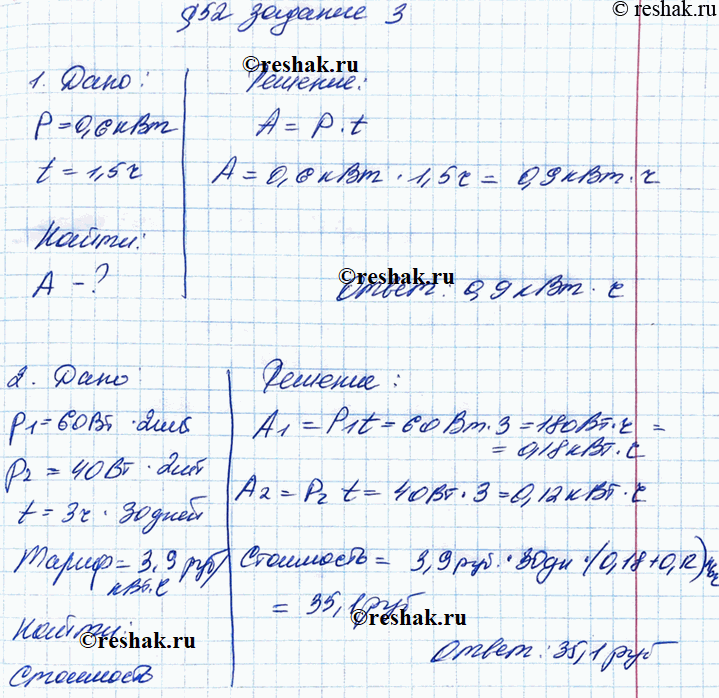 © reshak.ru
§52 задание 3
© reshak.ru
1. Дано:
P = 0,6 кВт
t = 1,5 ч
Найти:
A - ?
Решение:
A = P · t
A = 0,6 кВт · 1,5 ч = 0,9 кВт · ч
© reshak.ru
Ответ: 0,9 кВт · ч
2. Дано:
P1 = 60Вт · 2шт
P2 = 40Вт · 2шт
t = 3ч · 30дней
Тариф = 3,9 руб/
кВт·ч
Найти:
© reshak.ru
Стоимость
Решение:
A1 = P1t = 60Вт·3 = 180Вт·ч =
= 0,18кВт·ч
A2 = P2 t = 40Вт·3 = 0,12кВт·ч
Стоимость = 3,9руб·30дн·(0,18+0,12)
= 35,1руб
© reshak.ru
Ответ: 35,1 руб
© reshak.ru